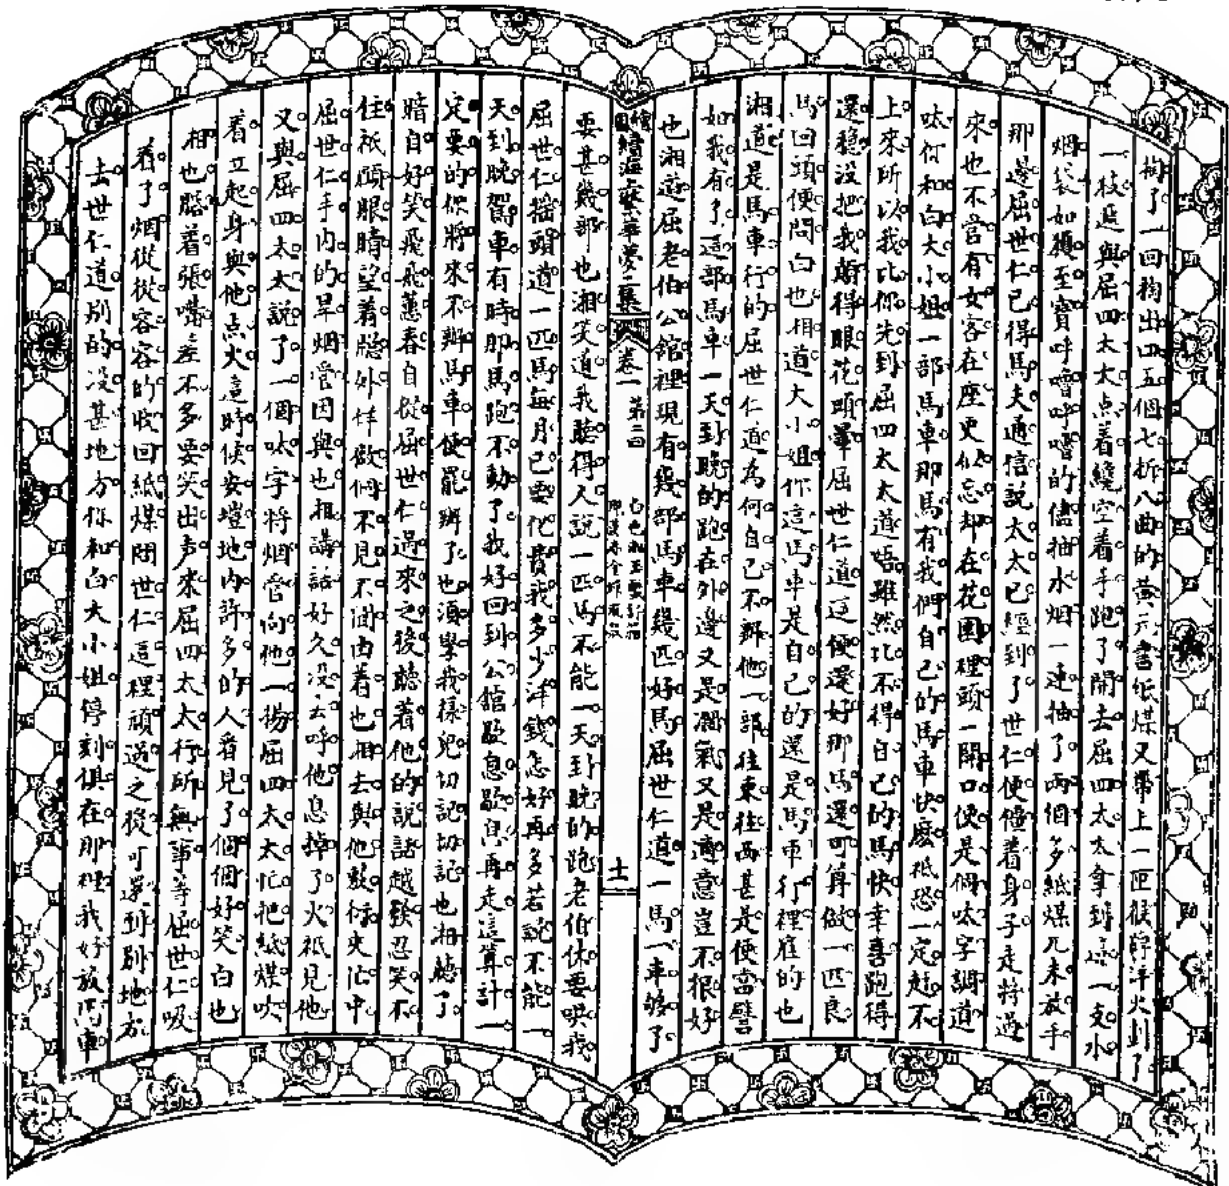 掏了一回掏出四五個七折八曲的黃元書紙煤又帶上一匣猴牌洋火劃了
一枝遞與屈四太太点着纔空着手跑了開去屈四太太拿到這一支水
烟袋如獲至寶呼嚕呼嚕的儘抽水烟一連抽了兩個多紙煤兀未放手
那邊屈世仁已得馬夫通信説太太已經到了世仁便僵着身子走將過
來也不管有女客在座更似忘却在花園裡頭一開口便是個呔字調道
呔何和白大小姐一部馬車那馬有我們自己的馬車快麽祇恐一定趕不
上來所以我比你先到屈四太太道唔雖然比不得自己的馬快幸喜跑得
還穩没把我顛得眼花頭暈屈世仁道這便還好那馬還可算做一匹良
馬回頭便問白也相道大小姐你這馬車是自己的還是馬車行裡雇的也
湘道是馬車行的屈世仁道為何自己不辦他一部往東往西甚是便當譬
如我有了這部馬車一天到晚的跑在外邊又是濶氣又是適意豈不很好
也湘道屈老伯公館裡現有幾部馬車幾匹好馬屈世仁道一馬一車够了
繪圖續海上繁華夢二集 卷一 第二回 十一
要甚幾部也湘笑道我聽得人説一匹馬不能一天到晚的跑老伯休要哄我
屈世仁摇頭道一匹馬每月已要化費我多少洋錢怎好再多若説不能一
天到晚駕車有時那馬跑不動了我好回到公館歇息歇息再走這算計一
定要的你將來不辦馬車便罷辦了也須學我樣兒切記切記也相聽了
暗自好笑飛飛蕙春自從屈世仁過來之後聽着他的説話越發忍笑不
住祇顧眼睛望着牕外佯做個不見不聞由着也相去與他敷衍夾忙中
屈世仁手内的旱烟管因與也相講話好久没去呼他息掉了火祇見他
又與屈四太太説了一個呔字將烟管向他一揚屈四太太忙把紙煤吹
着立起身與他点火這時候安塏地内許多的人看見了個個好笑白也
相也膛着張嘴差不多要笑出声來屈四太太行所無事等屈世仁吸
着了烟從從容容的收回紙煤問世仁這裡頑過之後可還到别地方
去世仁道别的没甚地方你和白大小姐停刻俱在那裡我好放馬車